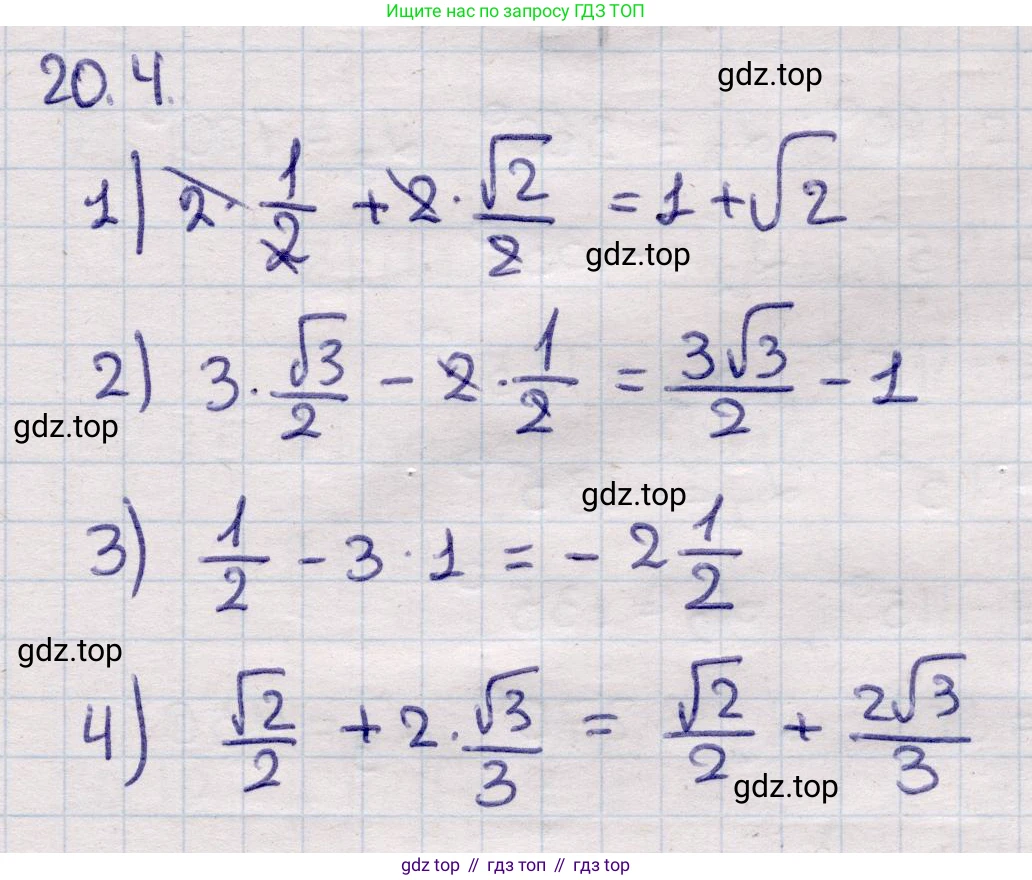 Ищите нас по запросу ГДЗ ТОП
20.4.
gdz.top
1) 2 · 1/2 + 2 · √2/2 = 1 + √2
gdz.top
2) 3 · √3/2 - 2 · 1/2 = 3√3/2 - 1
gdz.top
gdz.top
3) 1/2 - 3 · 1 = - 2 1/2
gdz.top
4) √2/2 + 2 · √3/3 = √2/2 + 2√3/3
gdz.top
gdz top // гдз топ // гдз top